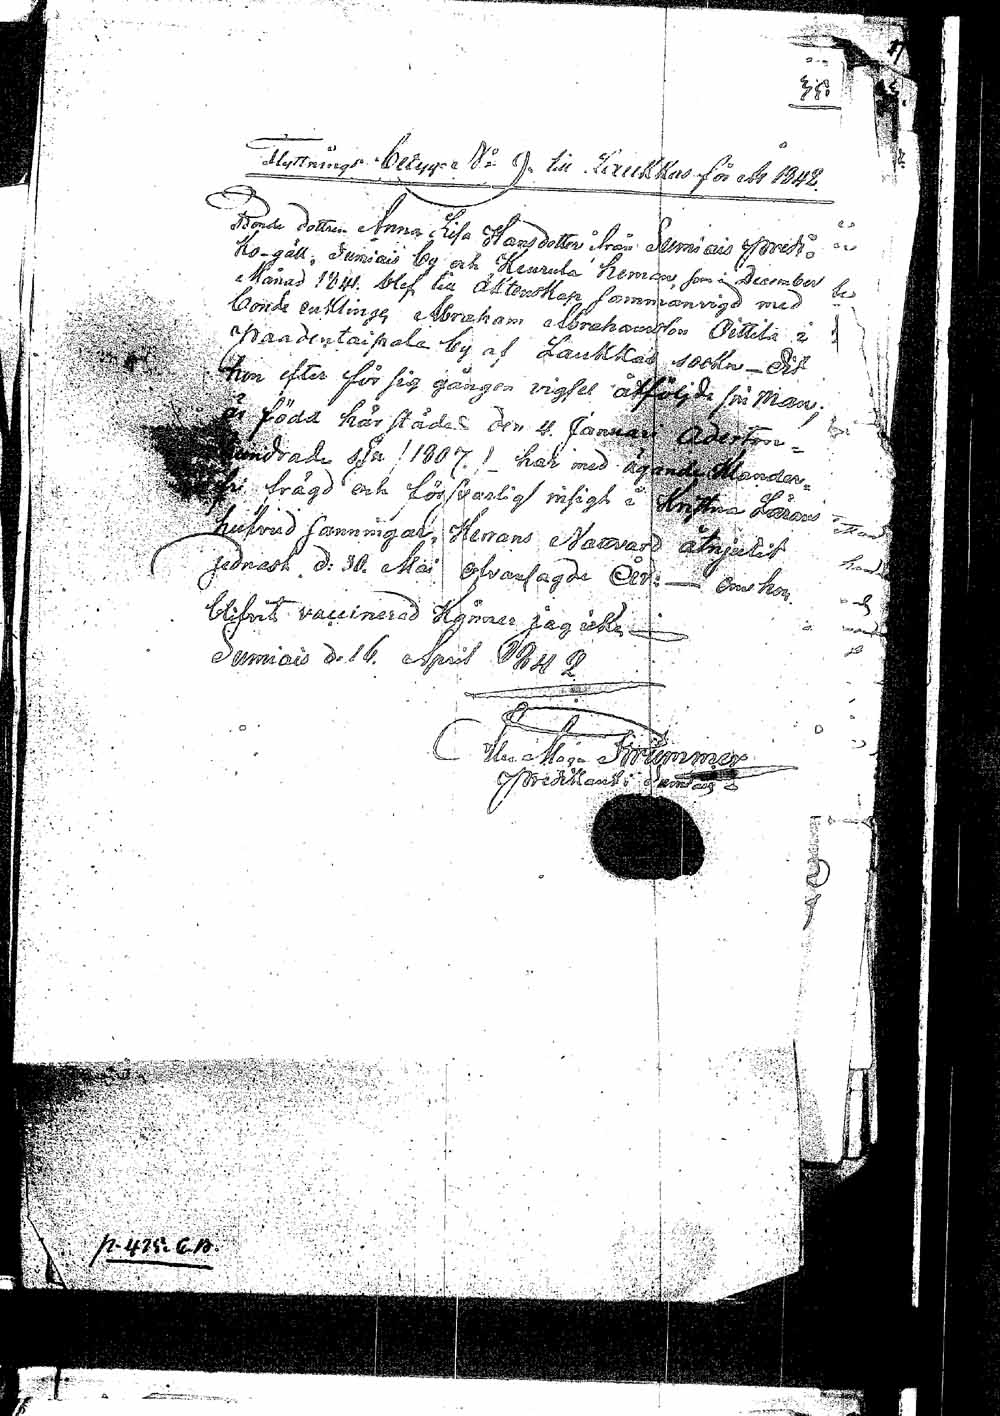 Flyttnings-betyg No 9. till Laukkas för År 1842.
Bonde dottren Anna Lisa Hansdotter från Sumiais Predi-
ko-gäll, Sumiais by och Keurula heman, som i December
Månad 1841. blef till äktenskap sammanvigd med
bonde enklingen Abraham Abrahamsson Pittilä i
Paadentaipale by af Laukkas sockn – Dit
hon efter för sig gången vigsel åtföljde sin Man,
är född härstädes den 4. Januari Aderton-
hundrade sju /1807./ – har med ägande
frägd och försvarligt insigt i Kristna Lärans
hufvud sanningar, Herrans Nattvard åtnjutit
sednast d. 30. Mai År: — om hon
blifvit vaccinerad känner jag icke
Sumiais d. 16. April 1842
Krummer
Predikant i Sumiais
p. 425. C.B.